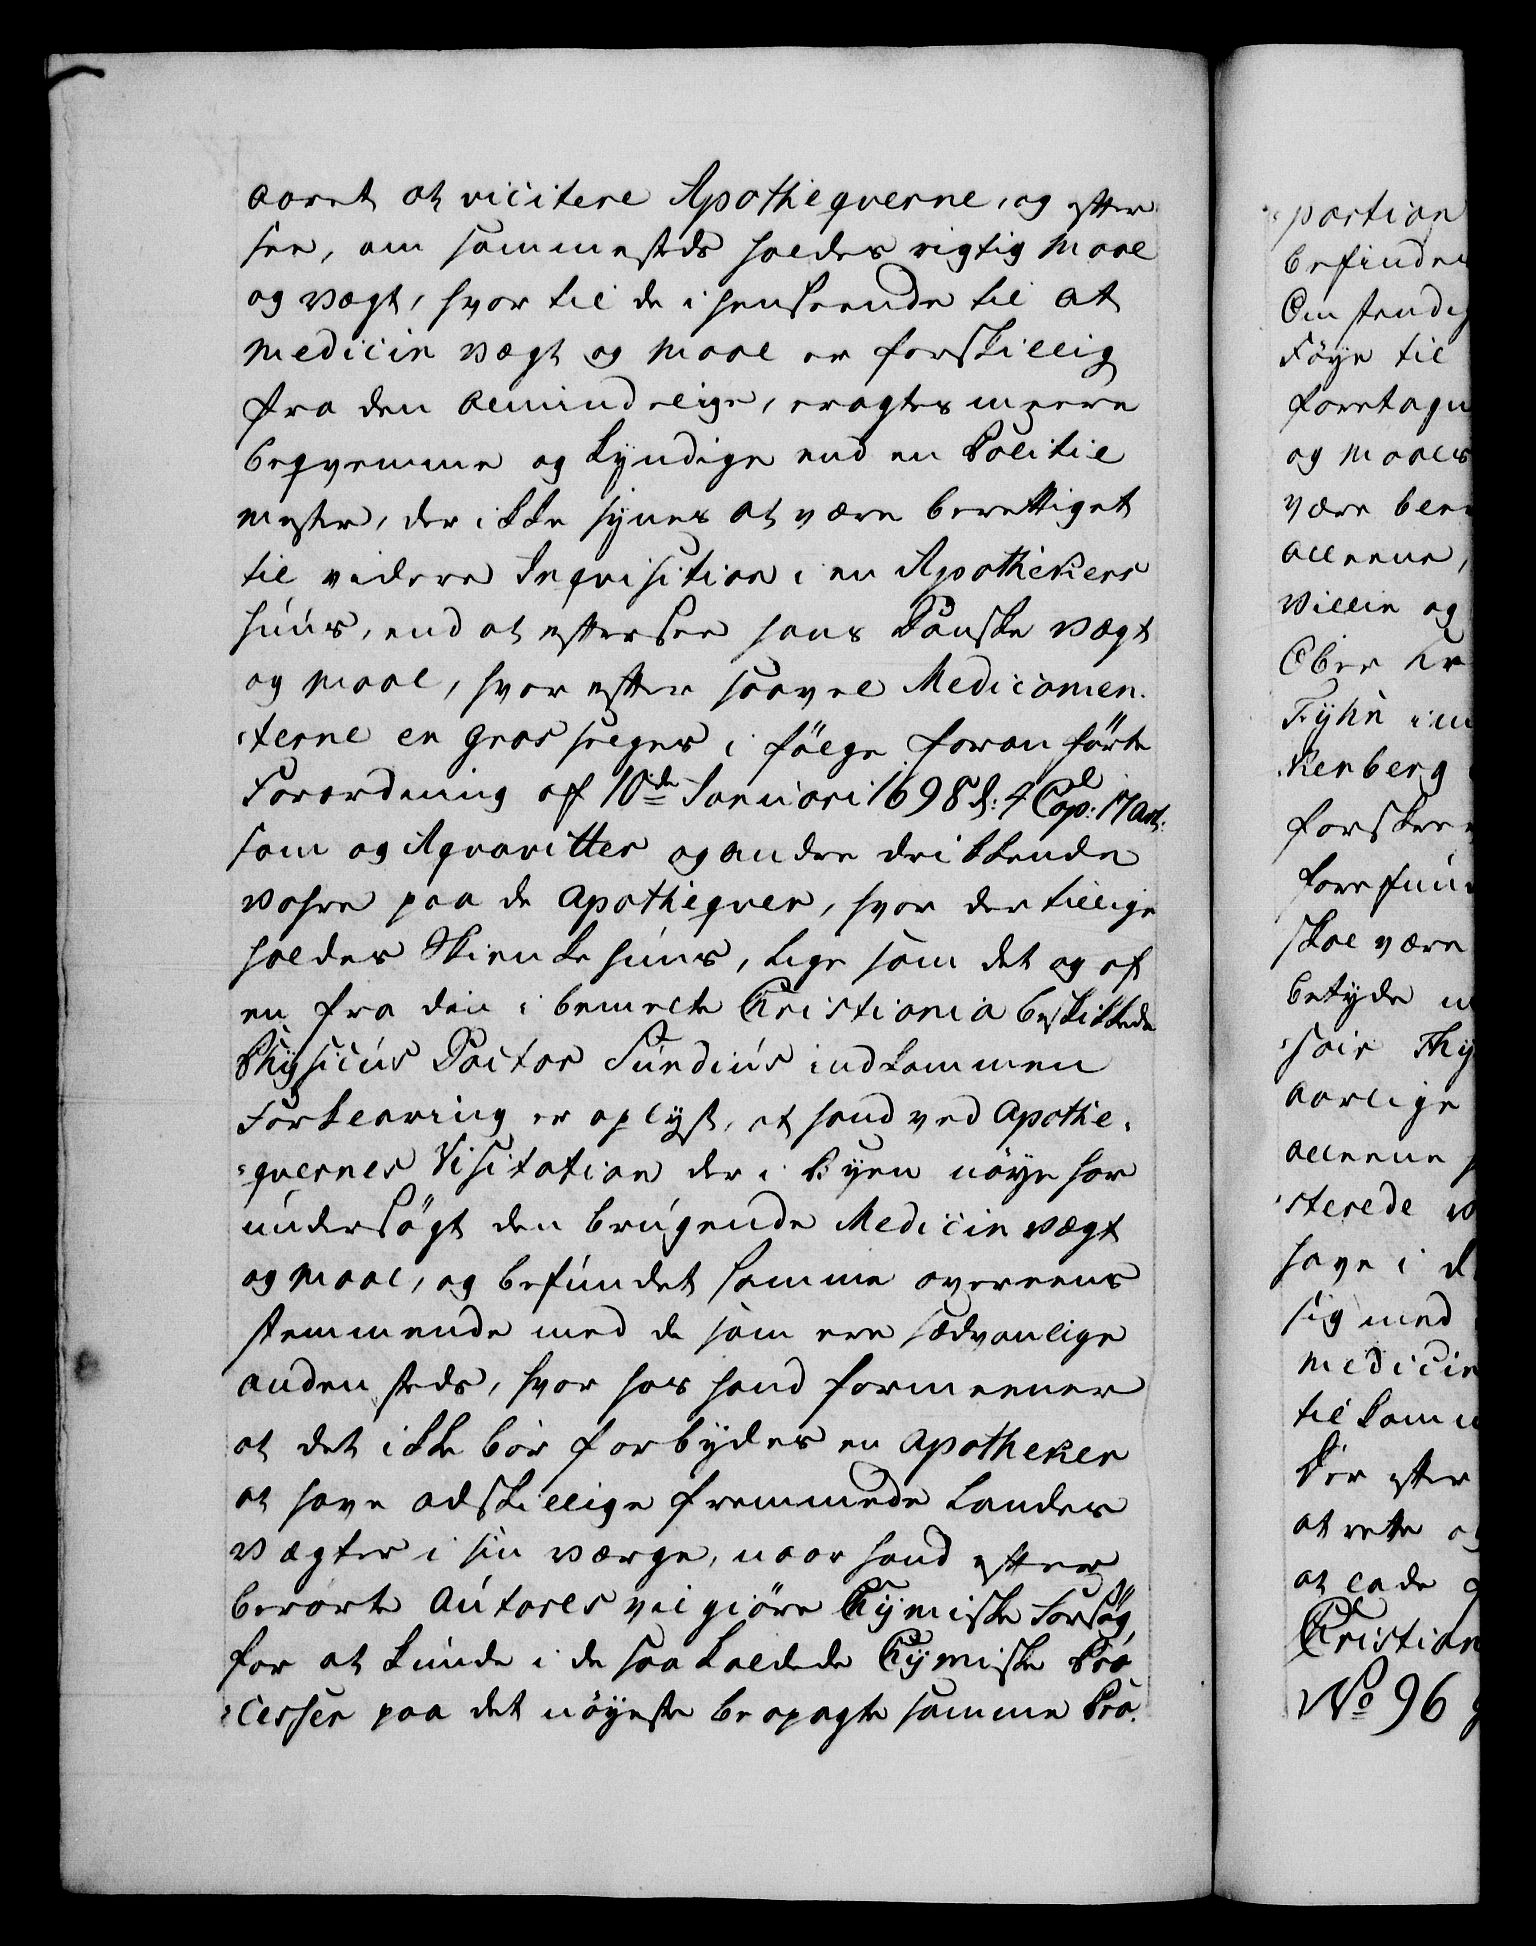 aaret at vicitere Apothequerne, og efter
see, om sammesteds holdes rigtig Maal
og vægt, hvor til de i henseende til at
Medicin vægt og Maal er forskillig
fra den Almindelige, eragtes meere
beqvemme og kyndige end en Politie
mester, der ikke synes at være berettiget
til videre Inqvisition i en Apothekers
huus, end at eftersee hans Danske vægt
og Maal, hvor efter saavel Medicamen-
terne en gros selges i fölge foran förte
Forordning af 10de Januari 1698 d: 4 Cap: 17 Art:
som og Aqvavitter og andre drikkende
vahre paa de Apothequer, hvor der tillige
holdes Skienke huus, lige som det og af
en fra den i bemelte Christiania beskikkede
Physicus Doctor Sundius indkommen
Forklaring er oplyst, at hand ved Apothe-
quernes Visitation der i Byen nöye har
undersögt den brugende Medicin vægt
og Maal, og befundet samme overeens
stemmende med de som ere sædvanlige
anden steds, hvor hos hand formeener
at det ikke bör forbydes en Apotheker
at have adskillige fremmede Landes
vægter i sin værge, naar hand efter
berörte Autores vil giöre Chymiske Forsög,
for at kunde i de saa kaldede Chymiske Pro-
cesser paa det nöyeste beopagte samme Pro-
portion
befinden
Omstendig
Föye til
foretagn
og Maals
være ble
alleene,
villie og
Ober
Fyhn
kenberg
forskre
forefun
skal være
betyde
Thy
aarlige
alleene
sterede
have i
sig med
Medicin
til komm
Der efter
at rette
at lade
Christian
No 96